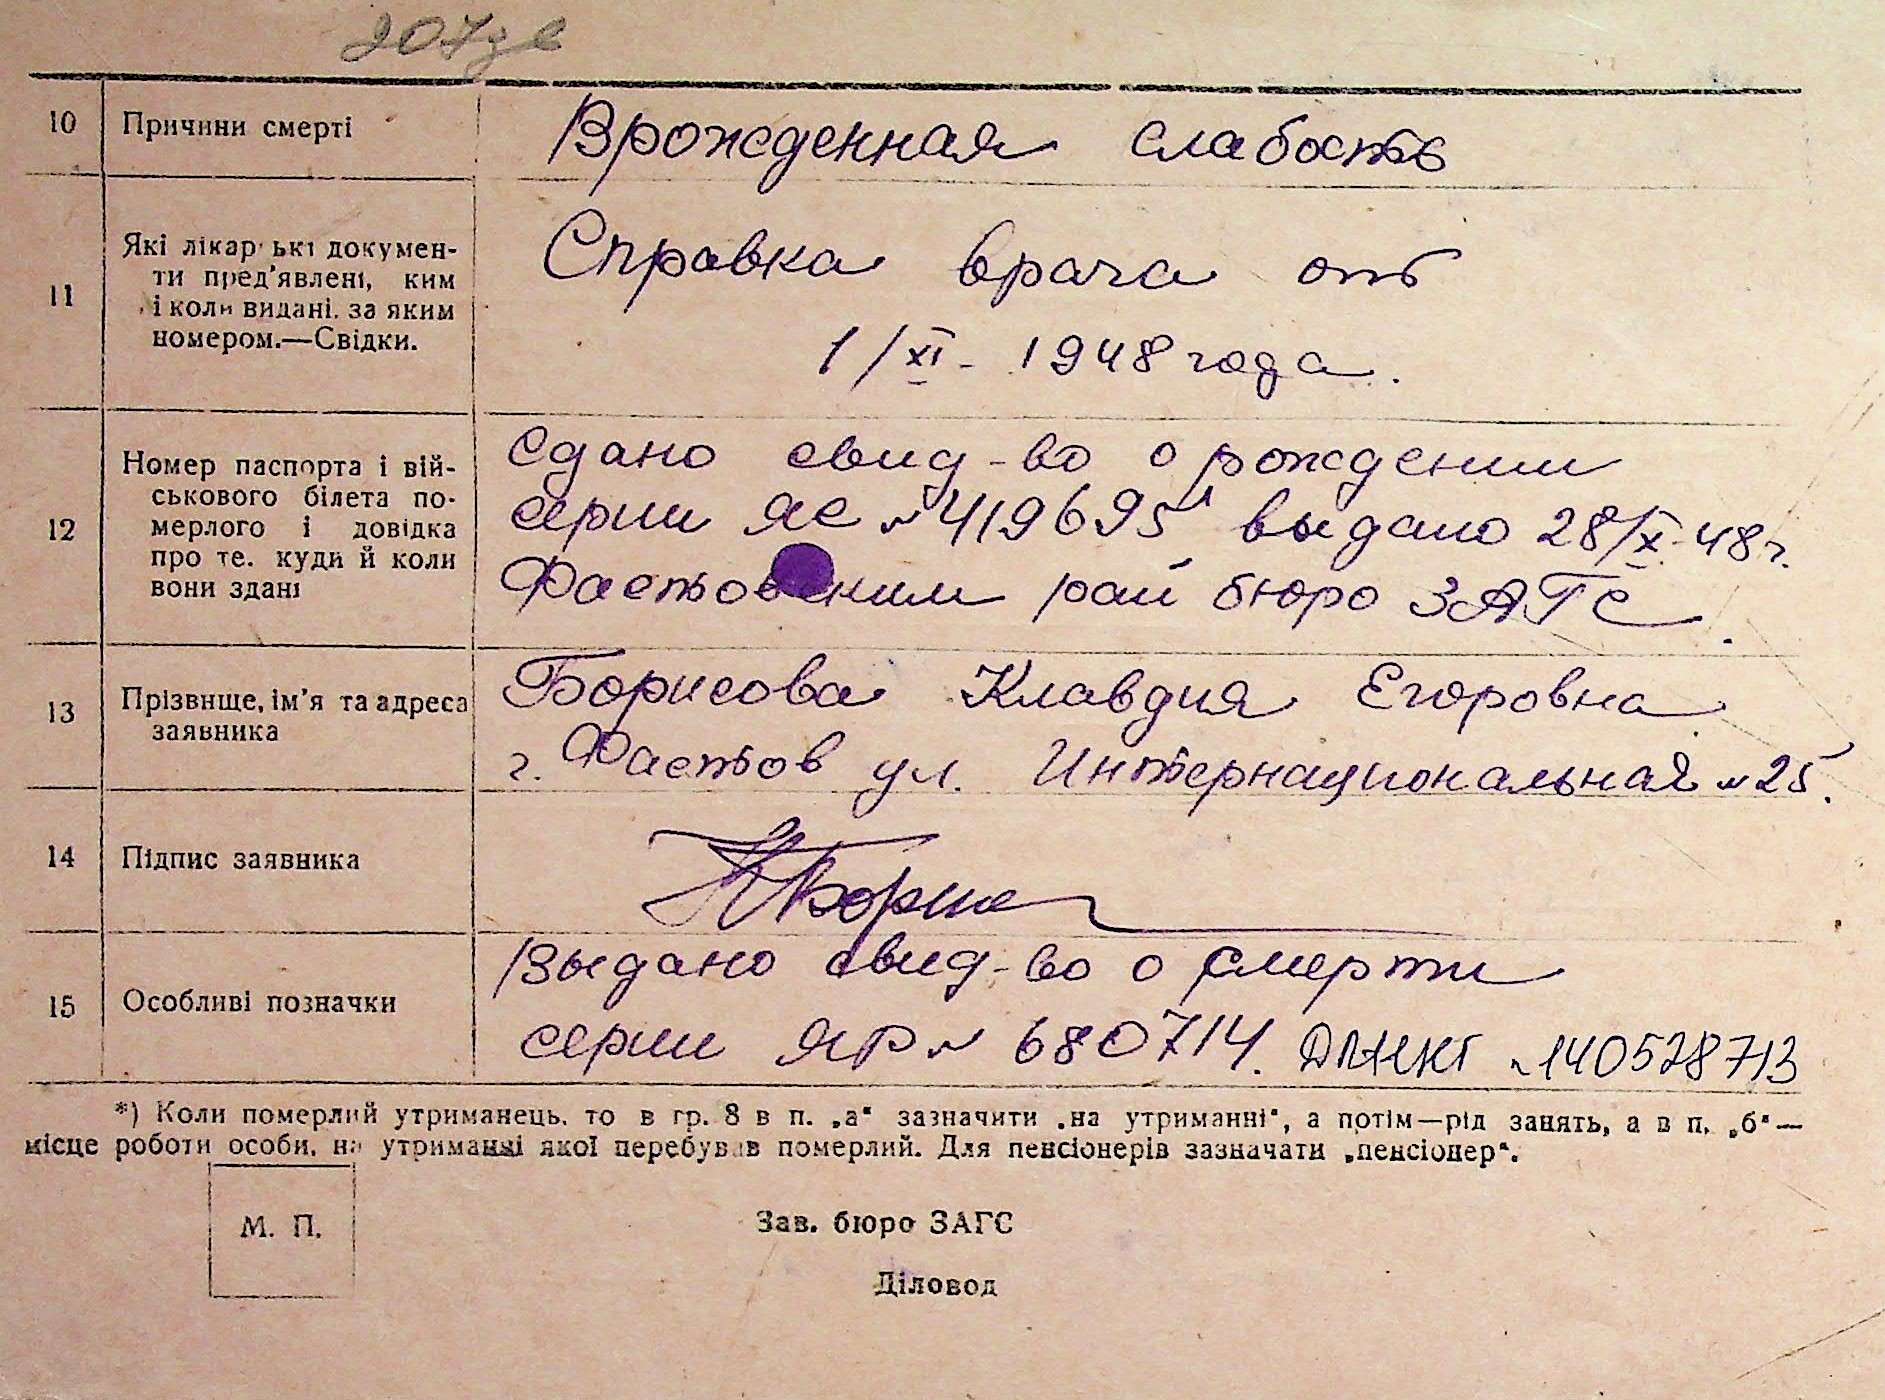 10 Причини смерті Врожденная слабость
11 Які лікарські докумен-
ти пред'явлені, ким
і коли видані, за яким
номером.—Свідки.
Справка врача от
1/XI - 1948 года.
12 Номер паспорта і вій-
ськового білета по-
мерлого і довідка
про те, куди й коли
вони здані
Сдано свид-во о рождении
серии ЯС № 419695 выдано 28/X-48 г.
Фастовским рай бюро ЗАГС.
13 Прізвище, ім'я та адреса
заявника
Борисова Клавдия Егоровна
г. Фастов ул. Интернациональная № 25.
14 Підпис заявника
15 Особливі позначки
Выдано свид-во о смерти
серии ЯР № 680714. № 140528713
*) Коли померлий утриманець, то в гр. 8 в п. „а“ зазначити „на утриманні“, а потім—рід занять, а в п. „б“—
місце роботи особи, на утриманні якої перебував померлий. Для пенсіонерів зазначати „пенсіонер“.
М. П.
Зав. бюро ЗАГС
Діловод